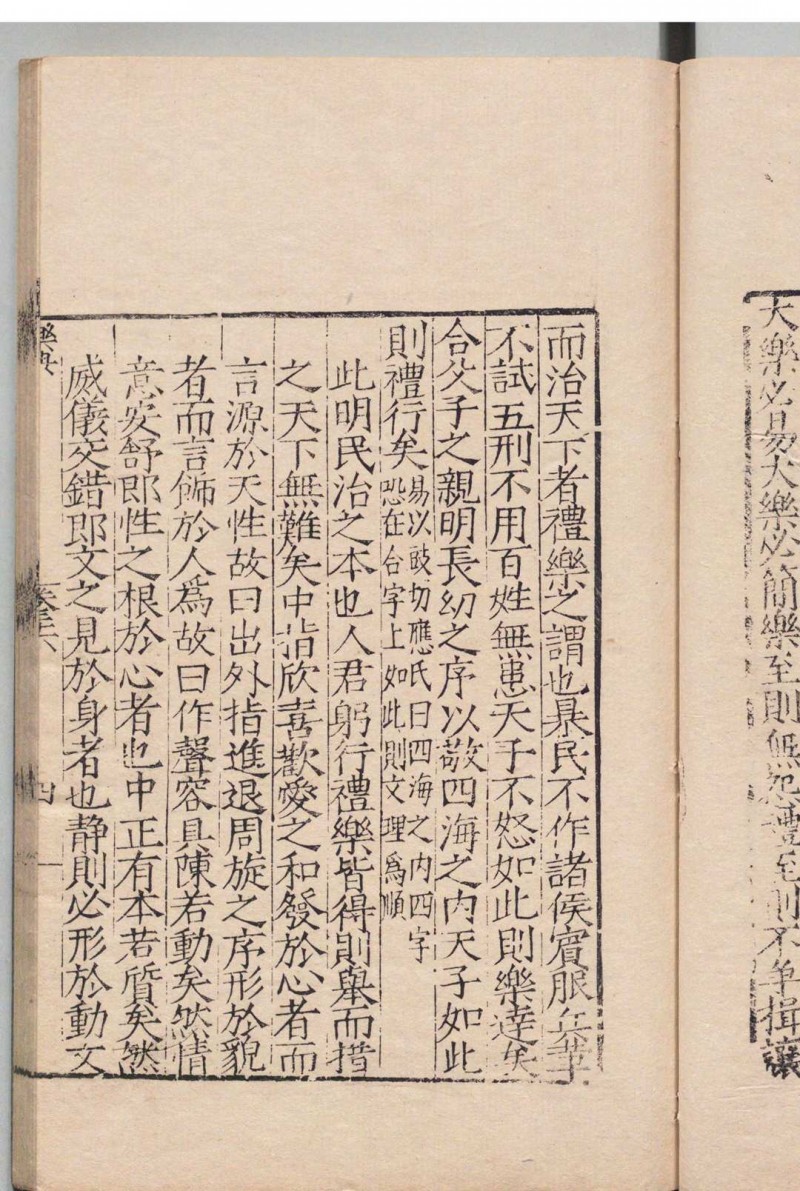 大樂必易大禮必簡樂至則無怨禮至則不爭揖讓
而治天下者禮樂之謂也暴民不作諸侯賓服兵革
不試五刑不用百姓無患天子不怒如此則樂達矣
合父子之親明長幼之序以敬四海之內天子如此
則禮行矣易以豉切應氏曰四海之內四字
恐在合字上如此則文理爲順
此明民治之本也人君躬行禮樂皆得則舉而措
之天下無難矣中指欣喜歡愛之和發於心者而
言源於天性故曰出外指進退周旋之序形於貌
者而言飾於人爲故曰作聲容具陳若動矣然情
意安舒即性之根於心者也中正有本若質矣然
威儀交錯即文之見於身者也静則必形於動文
四